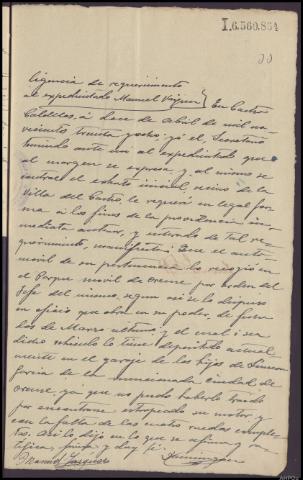 I.6.560.854
ligencia de requerimiento
al expedientado Manuel Vazquez } En Castro
Caldelas, a doce de Abril de mil no-
vecientos treinta y ocho: yo el Secretario
teniendo ante mi al expedientado que
al margen se expresa, y al mismo se
contrae el exhorto inicial, vecino de la
villa del Castro, le requerí en legal for-
ma a los fines de la providencia in-
mediata anterior, y enterado de tal re-
querimiento, manifiesta: Que el auto-
móvil de su pertenencia lo recogió en
el Parque móvil de Orense por orden del
Jefe del mismo, segun así se lo dispuso
en oficio que obra en su poder, de fecha
dos de Marzo último, y el cual o sea
dicho vehiculo lo tiene depositado actual-
mente en el garaje de los hijos de Simeon
García de la mencionada ciudad de
Orense, ya que no pudo haberlo traido
por encontrarse estropeado su motor y
con la falta de las cuatro ruedas comple-
tas. Así lo dijo en lo que se afirma y ra-
tifica, firma y doy fé.
Manuel Vazquez